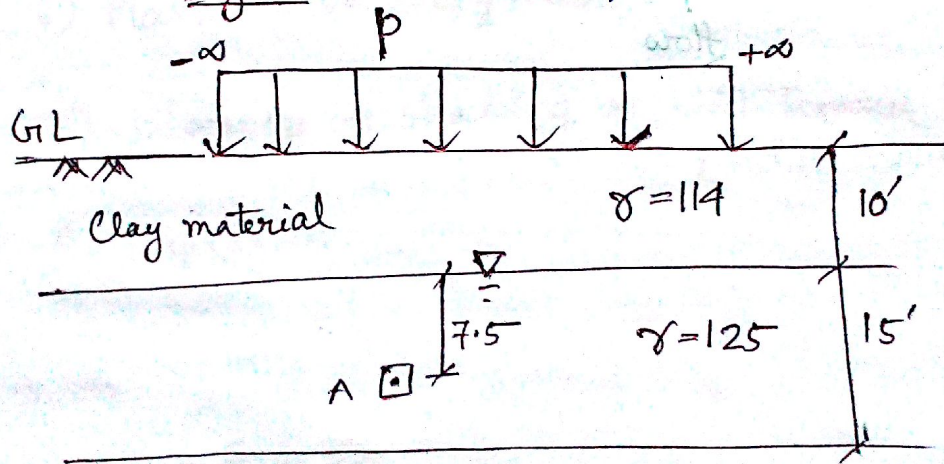 p
-∞ +∞
GL
Clay material γ=114 10'
7.5 γ=125 15'
A